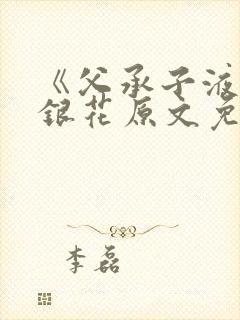 《父承子液
銀花原文免
李磊